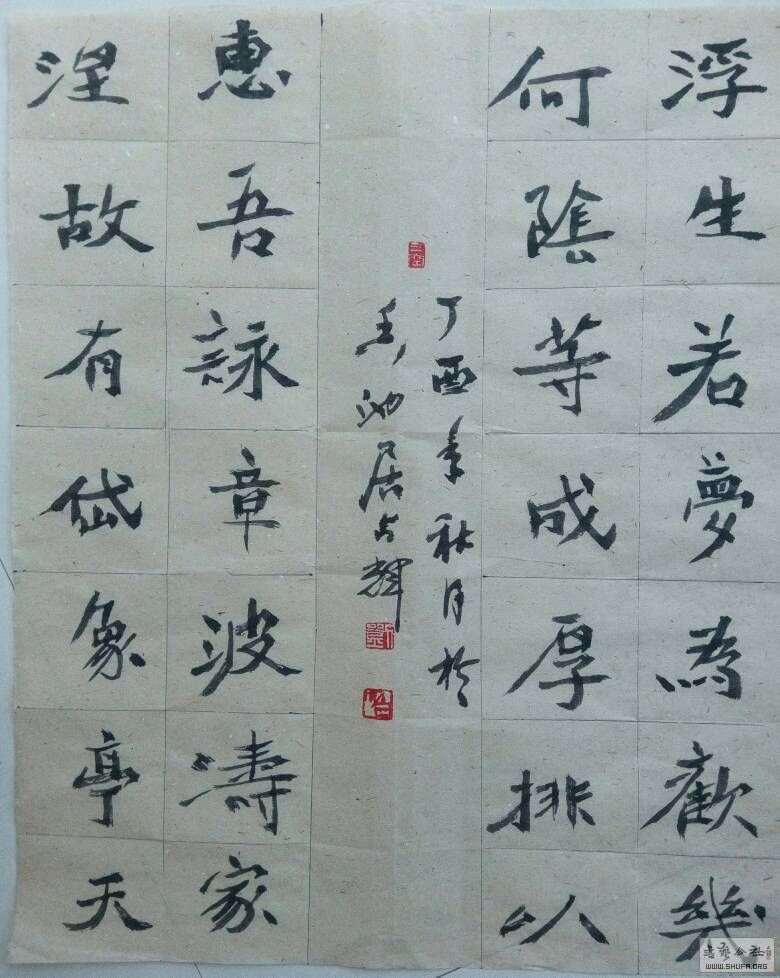 浮生若夢為歡幾
何陰等成厚排以
丁酉年秋月於
墨池居占輝
惠吾詠章波濤家
涅故有岱象亭天
書藝公社
WWW.SHUFA.ORG